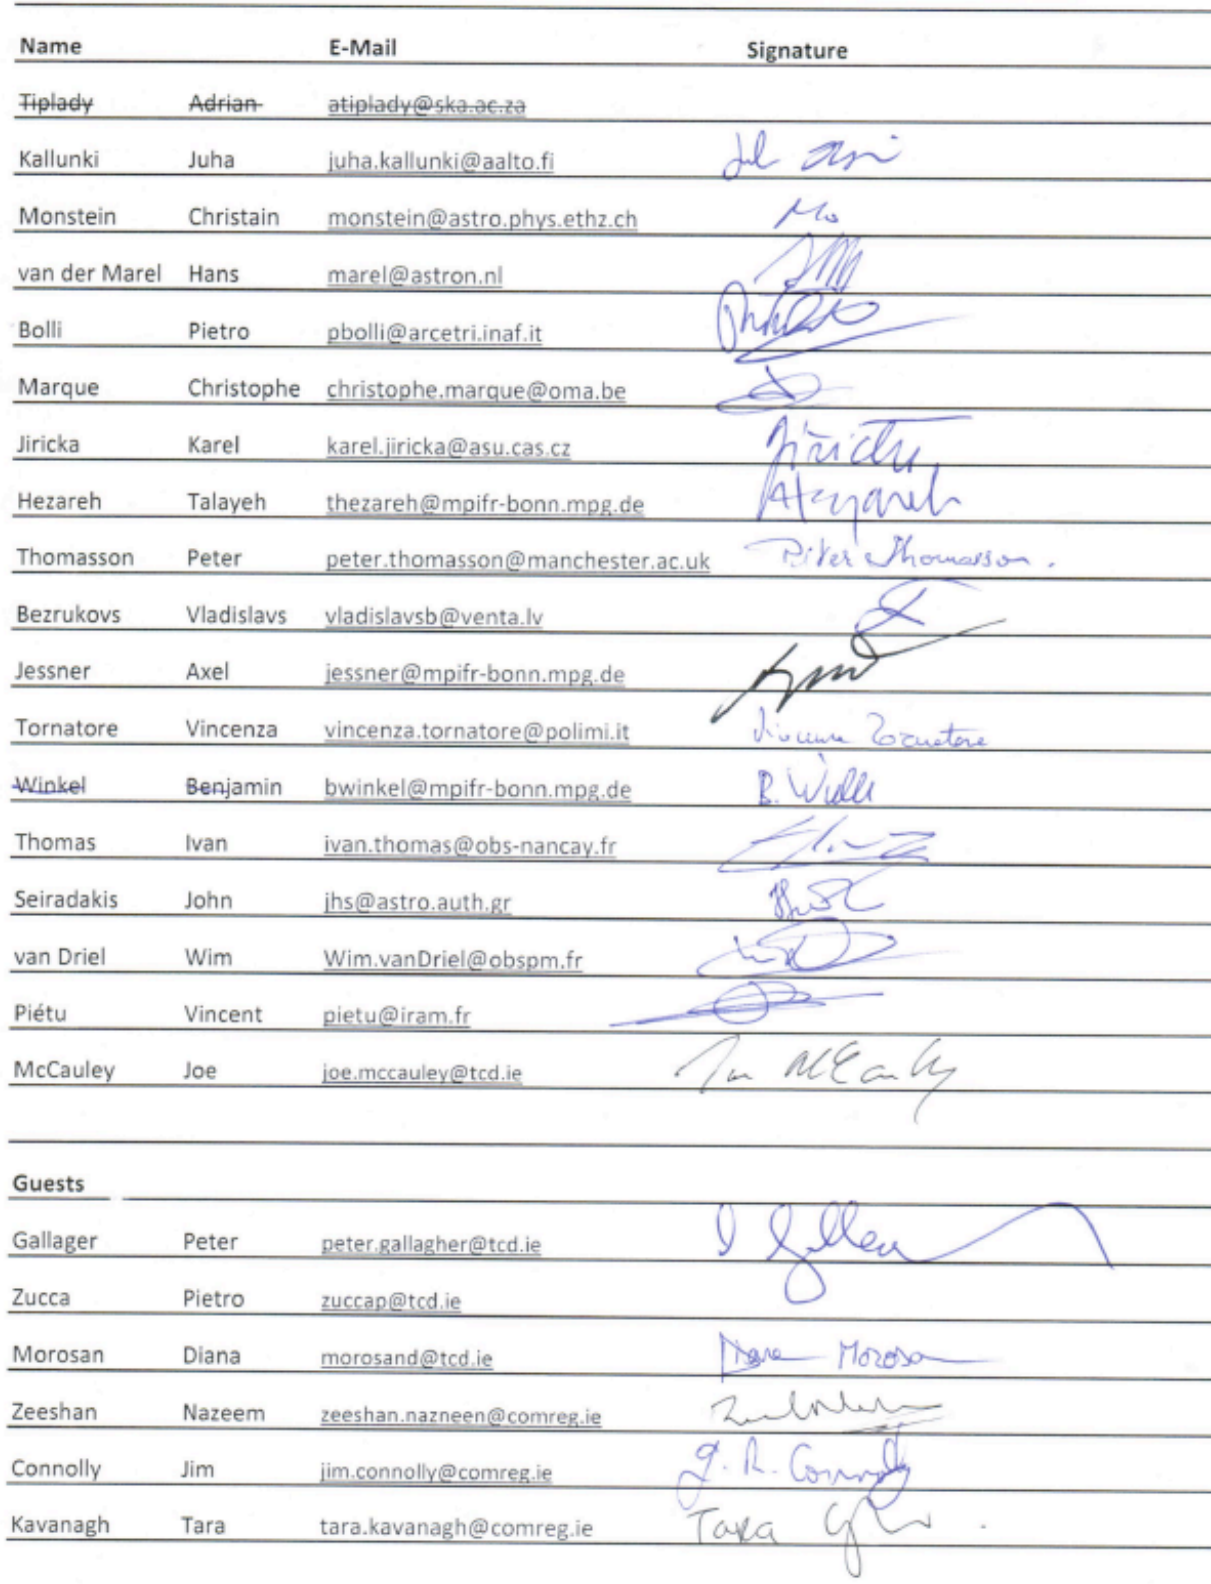 Name E-Mail Signature
Tiplady Adrian atiplady@ska.ac.za
Kallunki Juha juha.kallunki@aalto.fi
Monstein Christain monstein@astro.phys.ethz.ch Mo
van der Marel Hans marel@astron.nl
Bolli Pietro pbolli@arcetri.inaf.it
Marque Christophe christophe.marque@oma.be
Jiricka Karel karel.jiricka@asu.cas.cz
Hezareh Talayeh thezareh@mpifr-bonn.mpg.de
Thomasson Peter peter.thomasson@manchester.ac.uk Peter Thomasson.
Bezrukovs Vladislavs vladislavsb@venta.lv
Jessner Axel jessner@mpifr-bonn.mpg.de
Tornatore Vincenza vincenza.tornatore@polimi.it Vincenza Tornatore
Winkel Benjamin bwinkel@mpifr-bonn.mpg.de B.
Thomas Ivan ivan.thomas@obs-nancay.fr
Seiradakis John jhs@astro.auth.gr
van Driel Wim Wim.vanDriel@obspm.fr
Piétu Vincent pietu@iram.fr
McCauley Joe joe.mccauley@tcd.ie Joe McCauley
Guests
Gallager Peter peter.gallagher@tcd.ie
Zucca Pietro zuccap@tcd.ie
Morosan Diana morosand@tcd.ie Diana Morosan
Zeeshan Nazeem zeeshan.nazneen@comreg.ie
Connolly Jim jim.connolly@comreg.ie J. R. Connolly
Kavanagh Tara tara.kavanagh@comreg.ie Tara